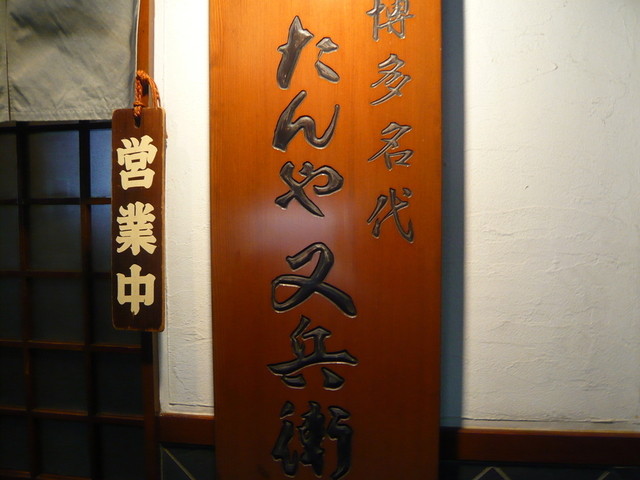 博多名代
たんや又兵衛
営業中